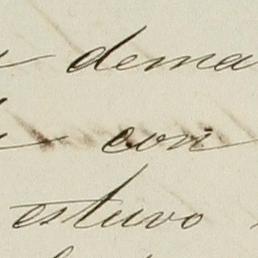 dema
con
estuvo